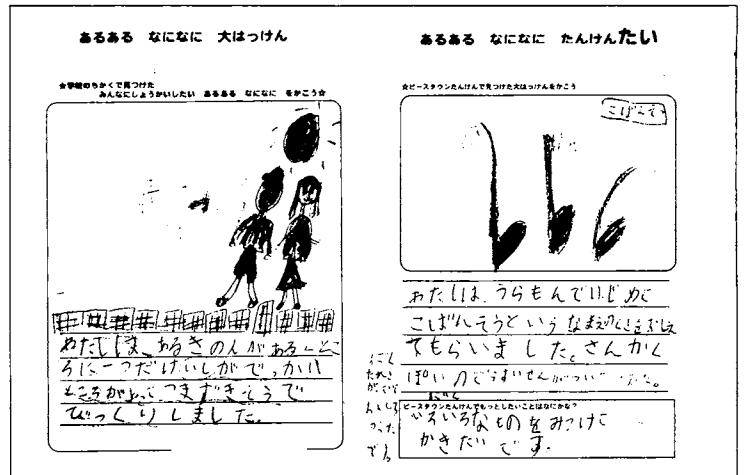 あるある なになに 大はっけん
☆学校のちかくで見つけた
みんなにしょうかいしたい あるある なになに をかこう☆
わたしは、あるきの人があるくとこ
ろに一つだけいしがでっかい
ところがあって つまずきそうで
びっくりしました。
あるある なになに たんけんたい
☆ピースタウンたんけんで見つけた大はっけんをかこう
こばんそう
わたしは、うらもんではじめて
こばんそうという なまえのくさをおしえ
てもらいました。さんかく
ぽい
ピースタウンたんけんでもっとしたいことはなにかな?
いろいろなものをみつけて
かきたいです。